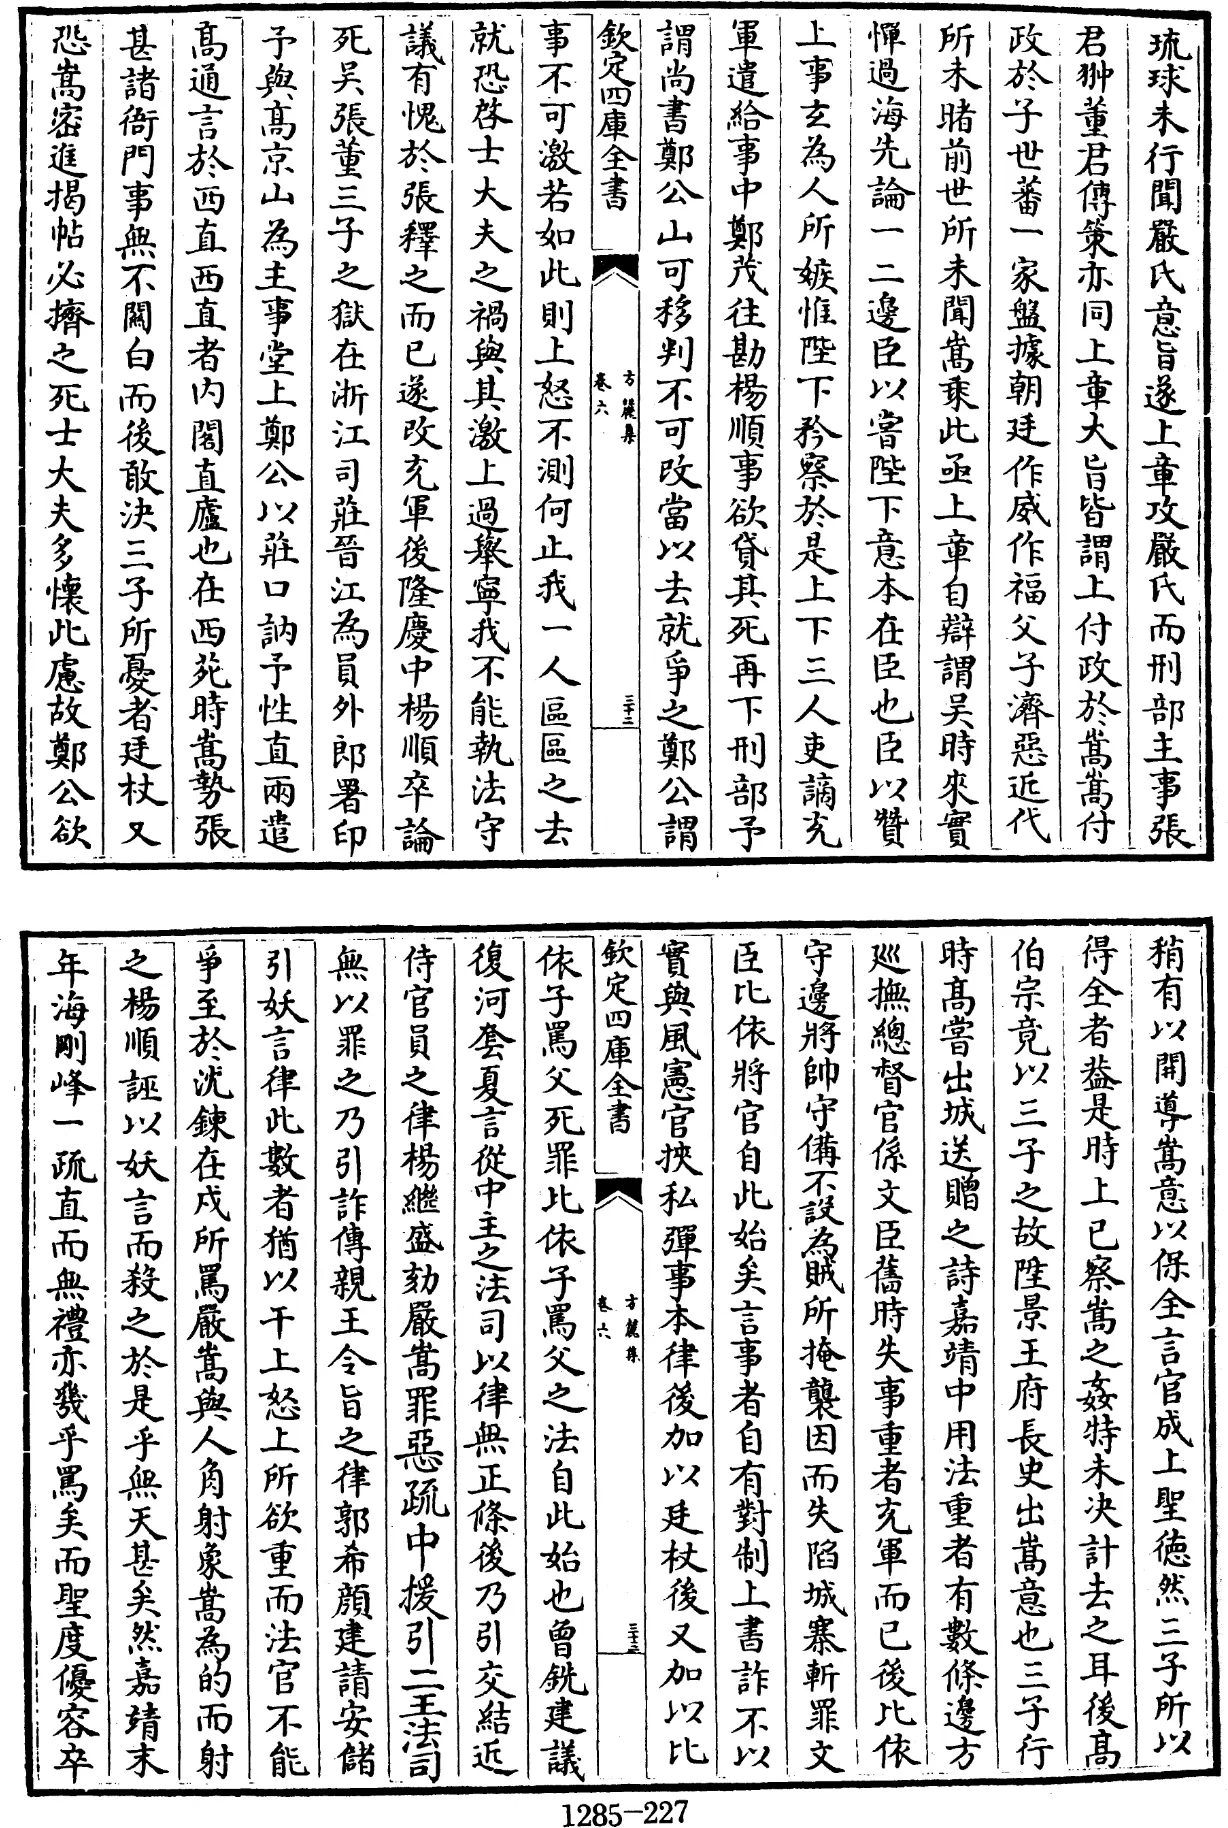 琉球未行聞嚴氏意旨遂上章攻嚴氏而刑部主事張
君翀董君傳策亦同上章大旨皆謂上付政於嵩嵩付
政於子世蕃一家盤據朝廷作威作福父子濟惡近代
所未睹前世所未聞嵩乗此亟上章自辯謂吴時來實
憚過海先論一二邊臣以嘗陛下意本在臣也臣以贊
上事玄為人所嫉惟陛下矜察於是上下三人吏謫充
軍遣給事中鄭茂往勘楊順事欲貸其死再下刑部予
謂尚書鄭公山可移判不可改當以去就爭之鄭公謂
欽定四庫全書
方麓集
卷六
三十二
事不可激若如此則上怒不測何止我一人區區之去
就恐啓士大夫之禍與其激上過舉寧我不能執法守
議有愧於張釋之而已遂改充軍後隆慶中楊順卒論
死吴張董三子之獄在浙江司莊晉江為員外郎署印
予與髙京山為主事堂上鄭公以莊口訥予性直兩遣
髙通言於西直西直者内閣直廬也在西苑時嵩勢張
甚諸衙門事無不關白而後敢決三子所憂者廷杖又
恐嵩密進揭帖必擠之死士大夫多懷此慮故鄭公欲
稍有以開導嵩意以保全言官成上聖徳然三子所以
得全者葢是時上已察嵩之姦特未決計去之耳後髙
伯宗竟以三子之故陞景王府長史出嵩意也三子行
時髙嘗出城送贈之詩嘉靖中用法重者有數條邊方
廵撫總督官係文臣舊時失事重者充軍而已後比依
守邊將帥守備不設為賊所掩襲因而失陷城寨斬罪文
臣比依將官自此始矣言事者自有對制上書詐不以
實與風憲官挾私彈事本律後加以廷杖後又加以比
欽定四庫全書
方麓集
卷六
三十三
依子罵父死罪比依子罵父之法自此始也曾銑建議
復河套夏言從中主之法司以律無正條後乃引交結近
侍官員之律楊繼盛劾嚴嵩罪惡疏中援引二王法司
無以罪之乃引詐傳親王令旨之律郭希顔建請安儲
引妖言律此數者猶以干上怒上所欲重而法官不能
爭至於沈鍊在戍所罵嚴嵩與人角射象嵩為的而射
之楊順誣以妖言而殺之於是乎無天甚矣然嘉靖末
年海剛峰一疏直而無禮亦幾乎罵矣而聖度優容卒
1285-227